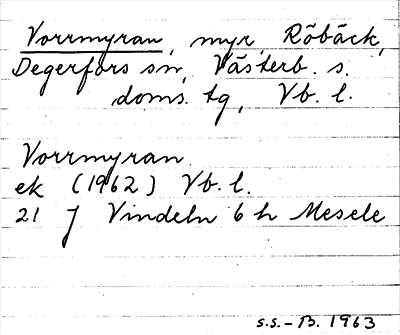 Vorrmyran, myr, Röbäck,
Degerfors sn, Västerb. s.
doms. tg, Vb. l.
Vorrmyran
ek (1962) Vb. l.
21 J Vindeln 6 h Mesele
s.s. - B. 1963